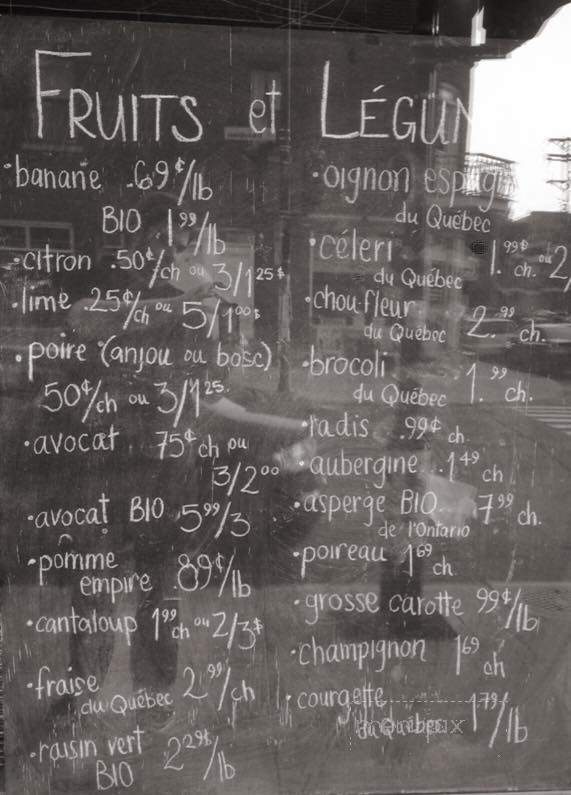 FRUITS et LÉGUM
• banane .69¢/lb
BIO 1.99/lb
• citron .50¢/ch ou 3/1 25$
• lime .25¢/ch ou 5/1 00$
• poire (anjou ou bosc)
50¢/ch ou 3/1 25.
• avocat .. 75¢ ch ou
3/2 00
• avocat BIO 5 99/3
• pomme
empire .89¢/lb
• cantaloup 1 99 ch ou 2/3$
• fraise
du Québec 2 99/ch
• raisin vert
BIO 2 29$/lb
• oignon espagn
du Québec
• céleri
du Québec 1. 99¢ ch. ou 2/
• chou-fleur
du Québec 2. 99 ch.
• brocoli
du Québec 1. 99 ch.
• radis .99¢ ch
• aubergine... 1 49 ch
• asperge BIO.. 7 99 ch.
de l'Ontario
• poireau 1 69 ch
• grosse carotte 99¢/lb
• champignon 1 69 ch
• courgette
du Québec 1 79/lb